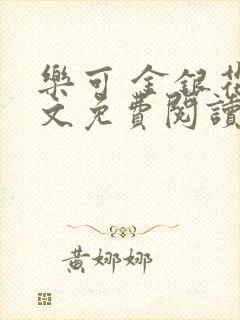 樂可 金銀花
文免費閱讀
黃娜娜